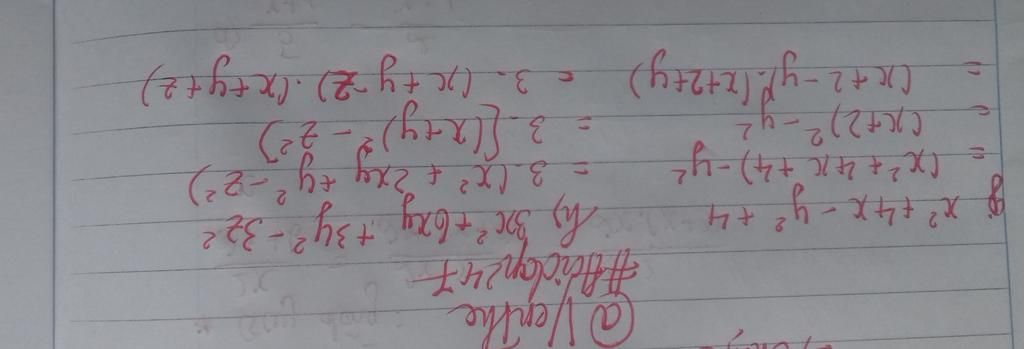 @Venthe
g x² + 4x - y² + 4
= (x² + 4x + 4) - y²
= (x + 2)² - y²
= (x + 2 - y).(x + 2 + y)
h) 3x² + 6xy + 3y² - 3z²
= 3.(x² + 2xy + y² - z²)
= 3.[(x + y)² - z²)
= 3.(x + y - z).(x + y + z)